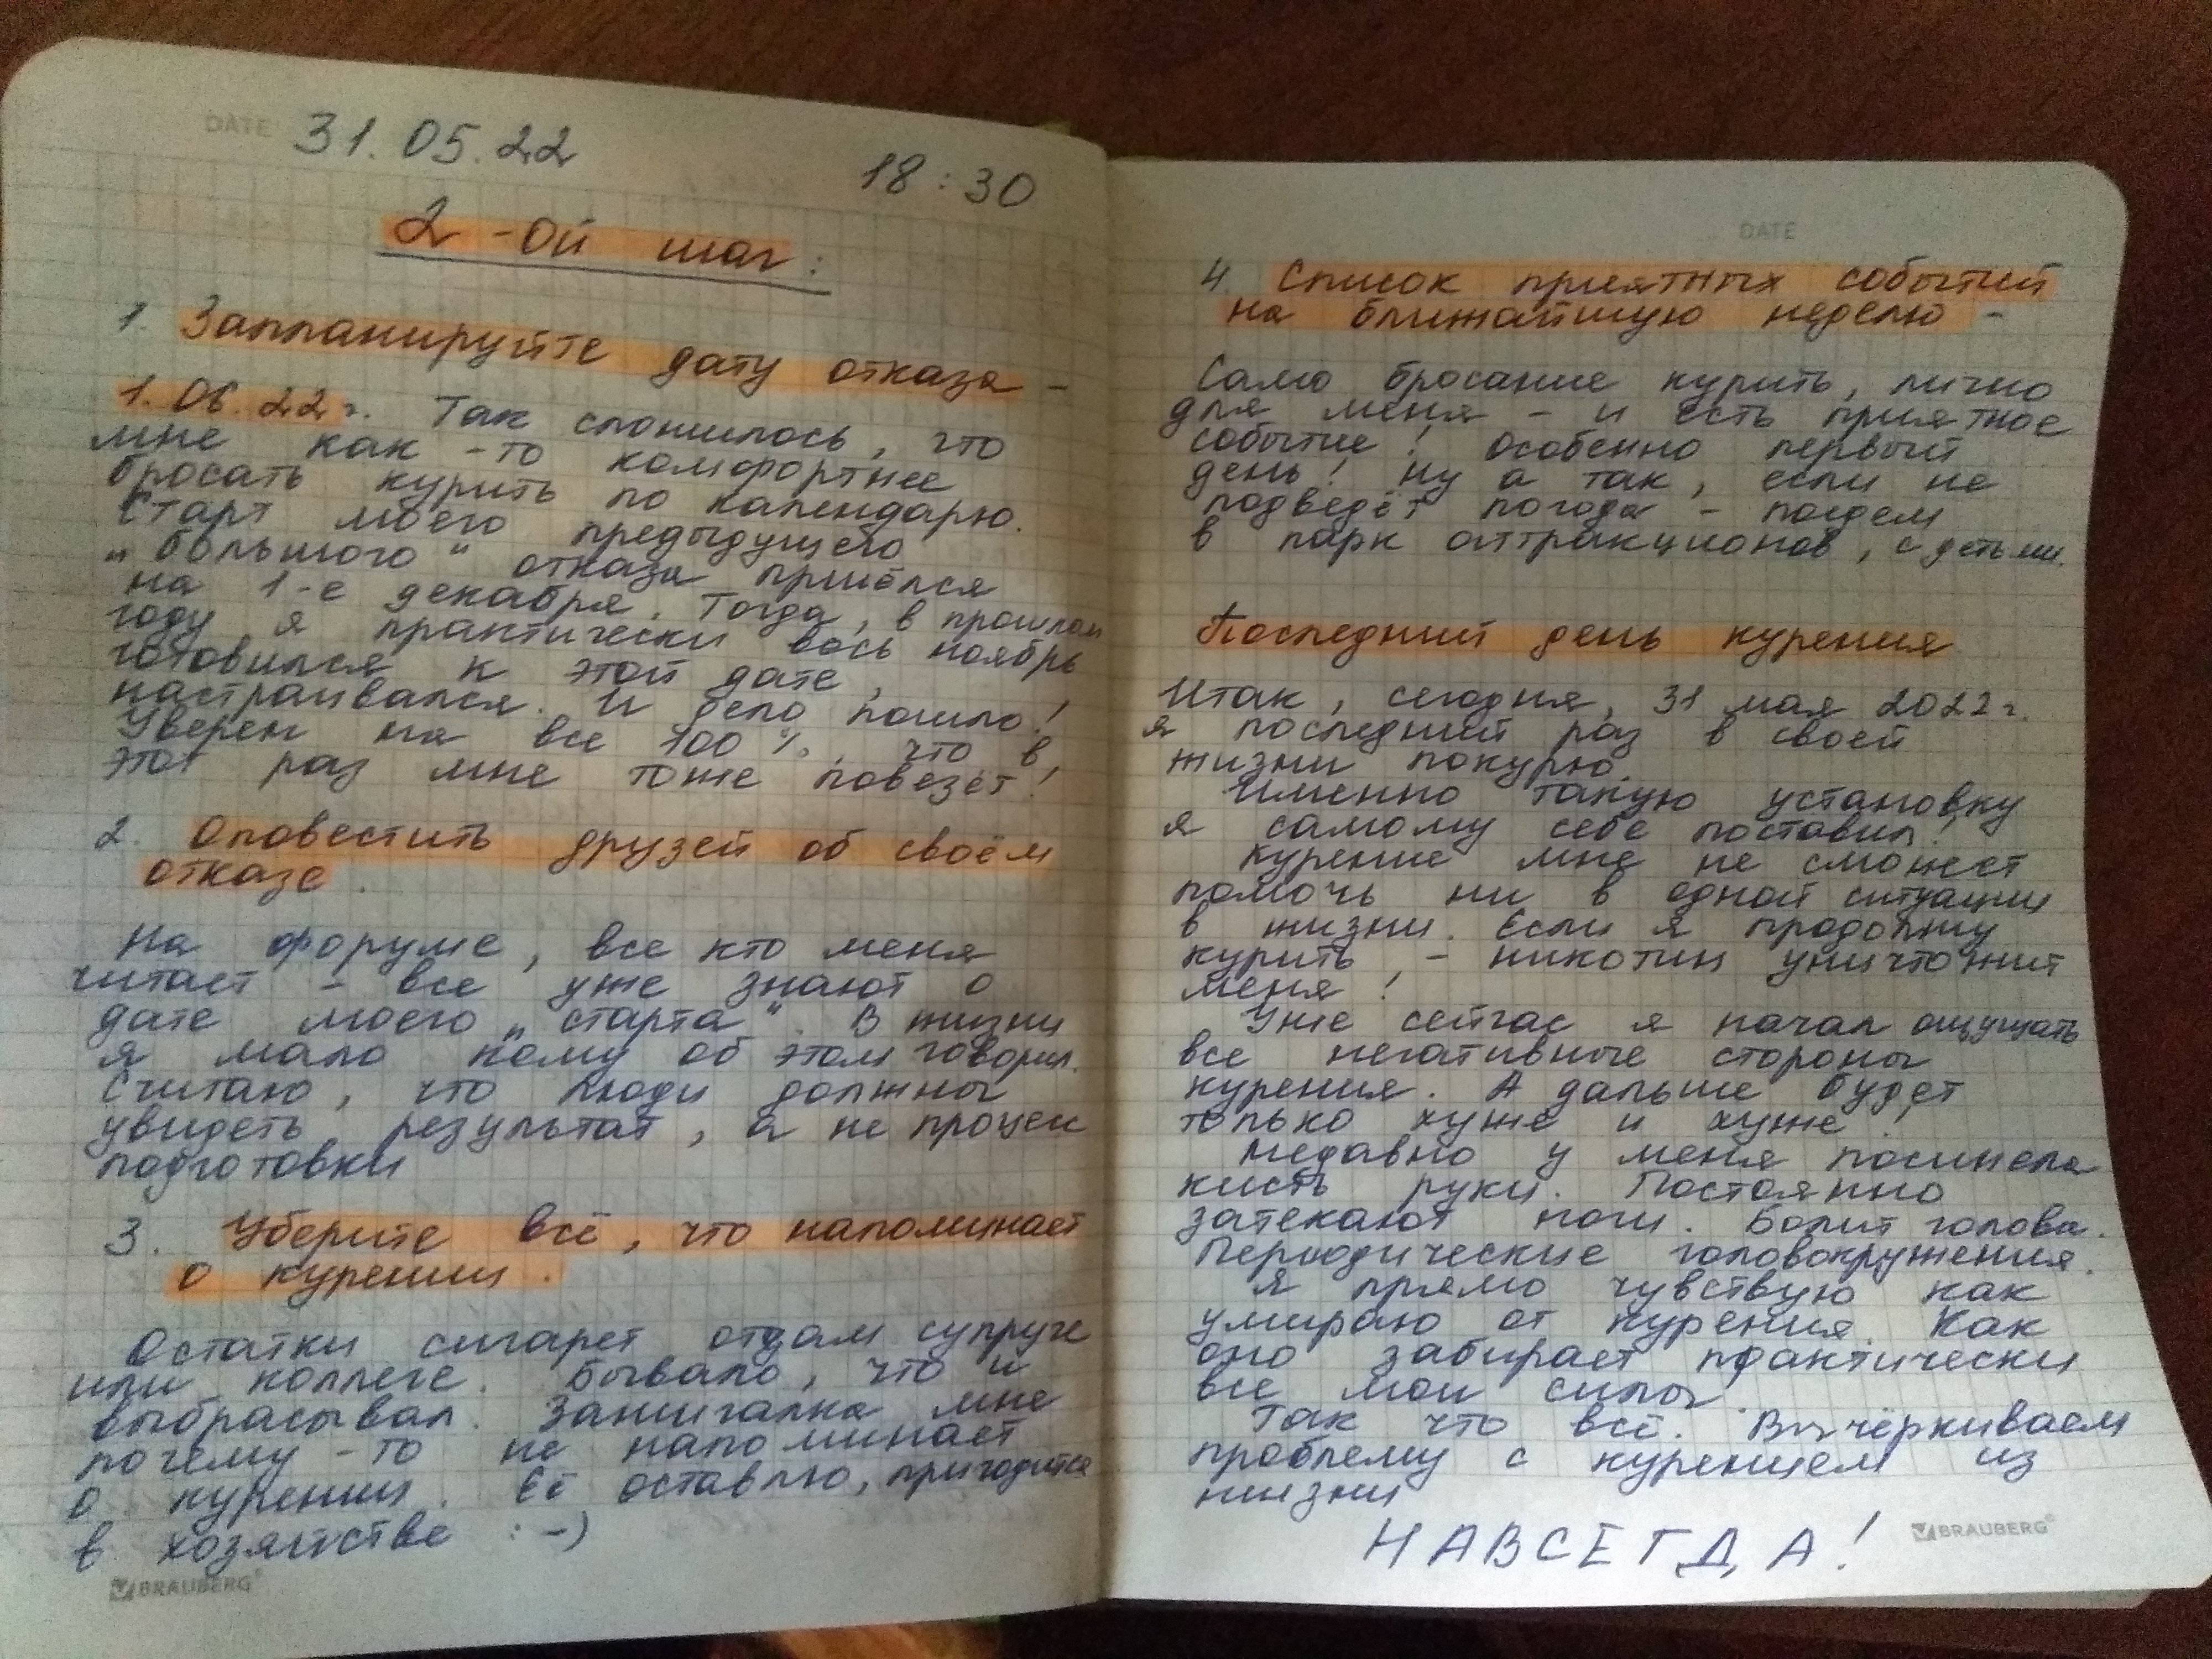 DATE 31.05.22
18:30
2-ой шаг:
1. Запланируйте дату отказа -
1.06.22г. Так сложилось, что
мне как-то комфортнее
бросать курить по календарю.
Старт моего предыдущего
„большого“ отказа пришёлся
на 1-е декабря. Тогда, в прошлом
году я практически весь ноябрь
готовился к этой дате,
настраивался. И дело пошло!
Уверен на все 100%, что в
этот раз мне тоже повезёт!
2. Оповестить друзей об своём
отказе.
На форуме, все кто меня
читает - все уже знают о
дате моего „старта“. В жизни
я мало кому об этом говорил.
Считаю, что люди должны
увидеть результат, а не процесс
подготовки
3. Уберите всё, что напоминает
о курении.
Остатки сигарет отдам супруге
или коллеге. Бывало, что и
выбрасывал. Зажигалка мне
почему-то не напоминает
о курении. Её оставлю, пригодится
в хозяйстве :-)
BRAUBERG®
DATE
4. Список приятных событий
на ближайшую неделю -
Само бросание курить, лично
для меня - и есть приятное
событие! Особенно первый
день! Ну а так, если не
подведёт погода - пойдем
в парк аттракционов, с детьми.
Последний день курения
Итак, сегодня, 31 мая 2022г.
я последний раз в своей
жизни покурю.
Именно такую установку
я самому себе поставил!
Курение мне не сможет
помочь ни в одной ситуации
в жизни. Если я продолжу
курить, - никотин уничтожит
меня!
Уже сейчас я начал ощущать
все негативные стороны
курения. А дальше будет
только хуже и хуже!
Недавно у меня посинела
кисть руки. Постоянно
затекают ноги. Болит голова.
Периодические головокружения.
Я прямо чувствую как
умираю от курения. Как
оно забирает практически
все мои силы.
Так что всё. Вычёркиваем
проблему с курением из
жизни
НАВСЕГДА!
BRAUBERG®